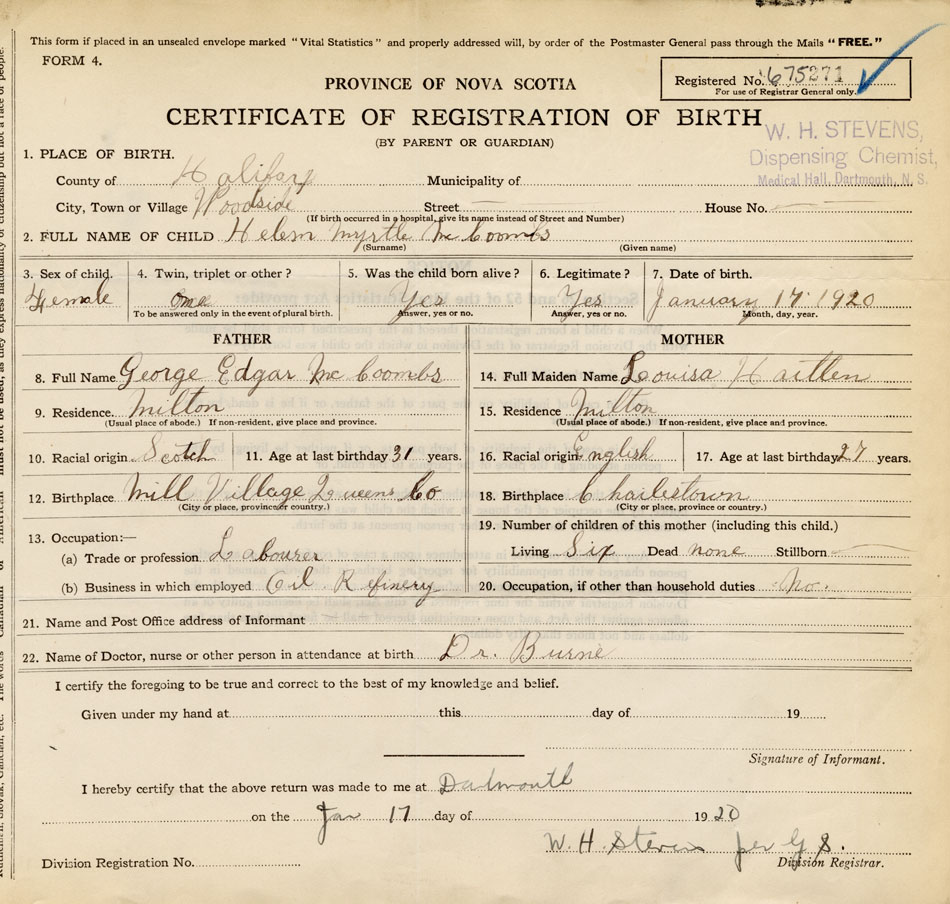 This form if placed in an unsealed envelope marked "Vital Statistics" and properly addressed will, by order of the Postmaster General pass through the Mails "FREE."
FORM 4.
Registered No. 675271
For use of Registrar General only.
PROVINCE OF NOVA SCOTIA
CERTIFICATE OF REGISTRATION OF BIRTH
(BY PARENT OR GUARDIAN)
W. H. STEVENS,
Dispensing Chemist,
Medical Hall, Dartmouth, N. S.
1. PLACE OF BIRTH.
County of Halifax Municipality of
City, Town or Village Woodside Street — House No. —
(If birth occurred in a hospital, give its name instead of Street and Number)
2. FULL NAME OF CHILD Helen Myrtle McCoombs
(Surname) (Given name)
3. Sex of child. 4. Twin, triplet or other? 5. Was the child born alive? 6. Legitimate? 7. Date of birth.
Female one Yes Yes January 17 1920
To be answered only in the event of plural birth. Answer, yes or no. Answer, yes or no. Month, day, year.
FATHER
8. Full Name George Edgar McCoombs
9. Residence. Milton
(Usual place of abode.) If non-resident, give place and province.
10. Racial origin Scotch 11. Age at last birthday 31 years.
12. Birthplace Mill Village Queens Co
(City or place, province or country.)
13. Occupation:—
(a) Trade or profession Labourer
(b) Business in which employed Oil Refinery
MOTHER
14. Full Maiden Name Louisa
15. Residence Milton
(Usual place of abode.) If non-resident, give place and province.
16. Racial origin English 17. Age at last birthday 27 years.
18. Birthplace Charlestown
(City or place, province or country.)
19. Number of children of this mother (including this child.)
Living Six Dead none Stillborn —
20. Occupation, if other than household duties No.
21. Name and Post Office address of Informant
22. Name of Doctor, nurse or other person in attendance at birth Dr. Burne
I certify the foregoing to be true and correct to the best of my knowledge and belief.
Given under my hand at this day of 19
Signature of Informant.
I hereby certify that the above return was made to me at Dartmouth
on the Jan 17 day of 1920
W. H. Stevens per G S.
Division Registrar.
Division Registration No.